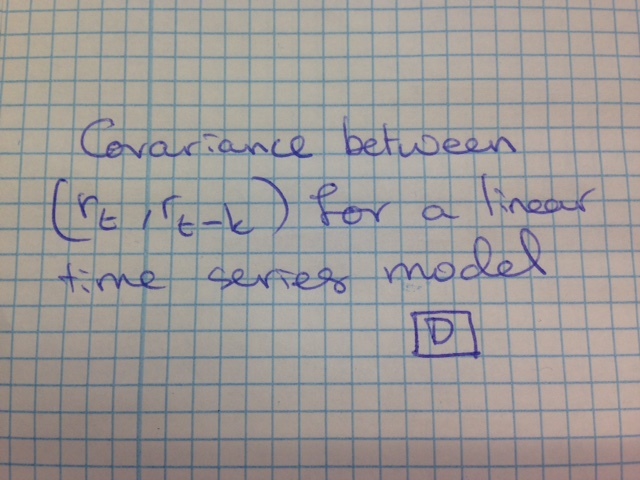 Covariance between
(r_t, r_t-k) for a linear
time series model
D